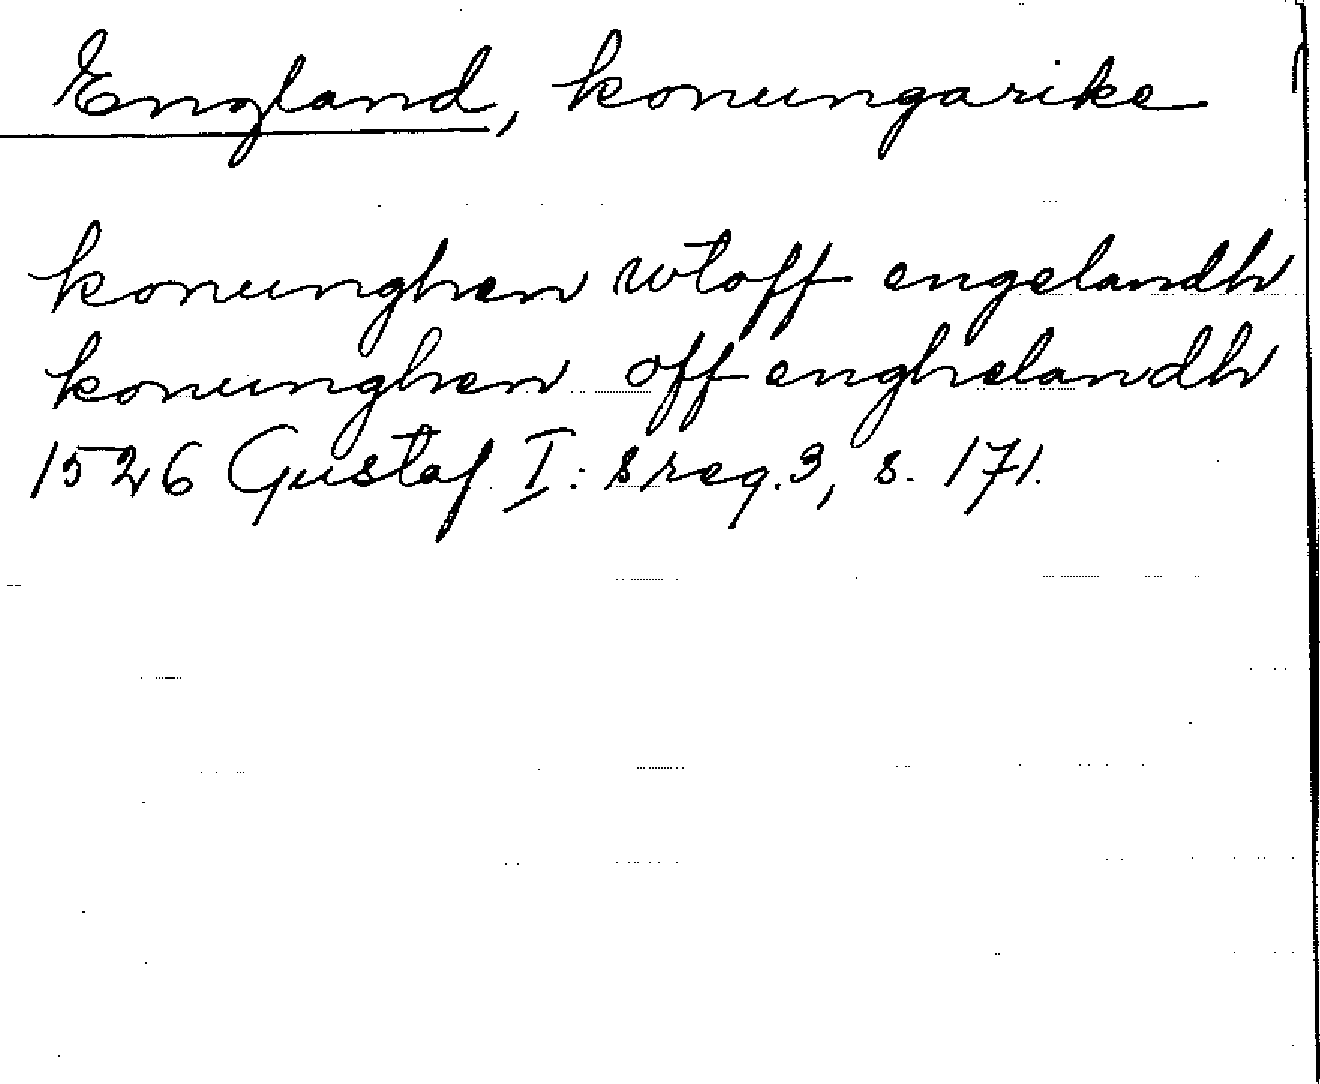 England, konungarike
konunghen wtoff engelandh
konunghen off enghelandh
1526 Gustaf I:s reg. 3, s. 171.